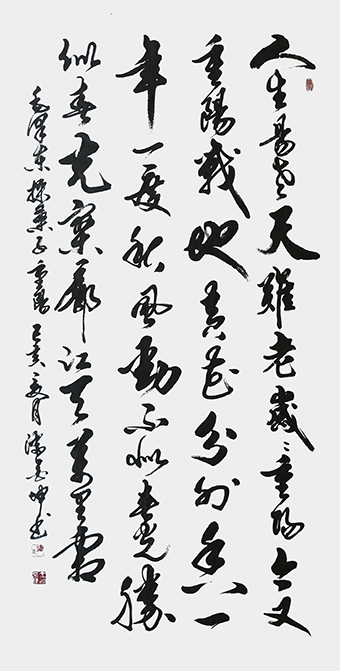 人生易老天難老歲〻重陽今又
重陽戰地黃花分外香一
年一度秋風勁不似春光勝
似春光寥廓江天萬里霜
毛澤東採桑子重陽 己亥夏月 坤书